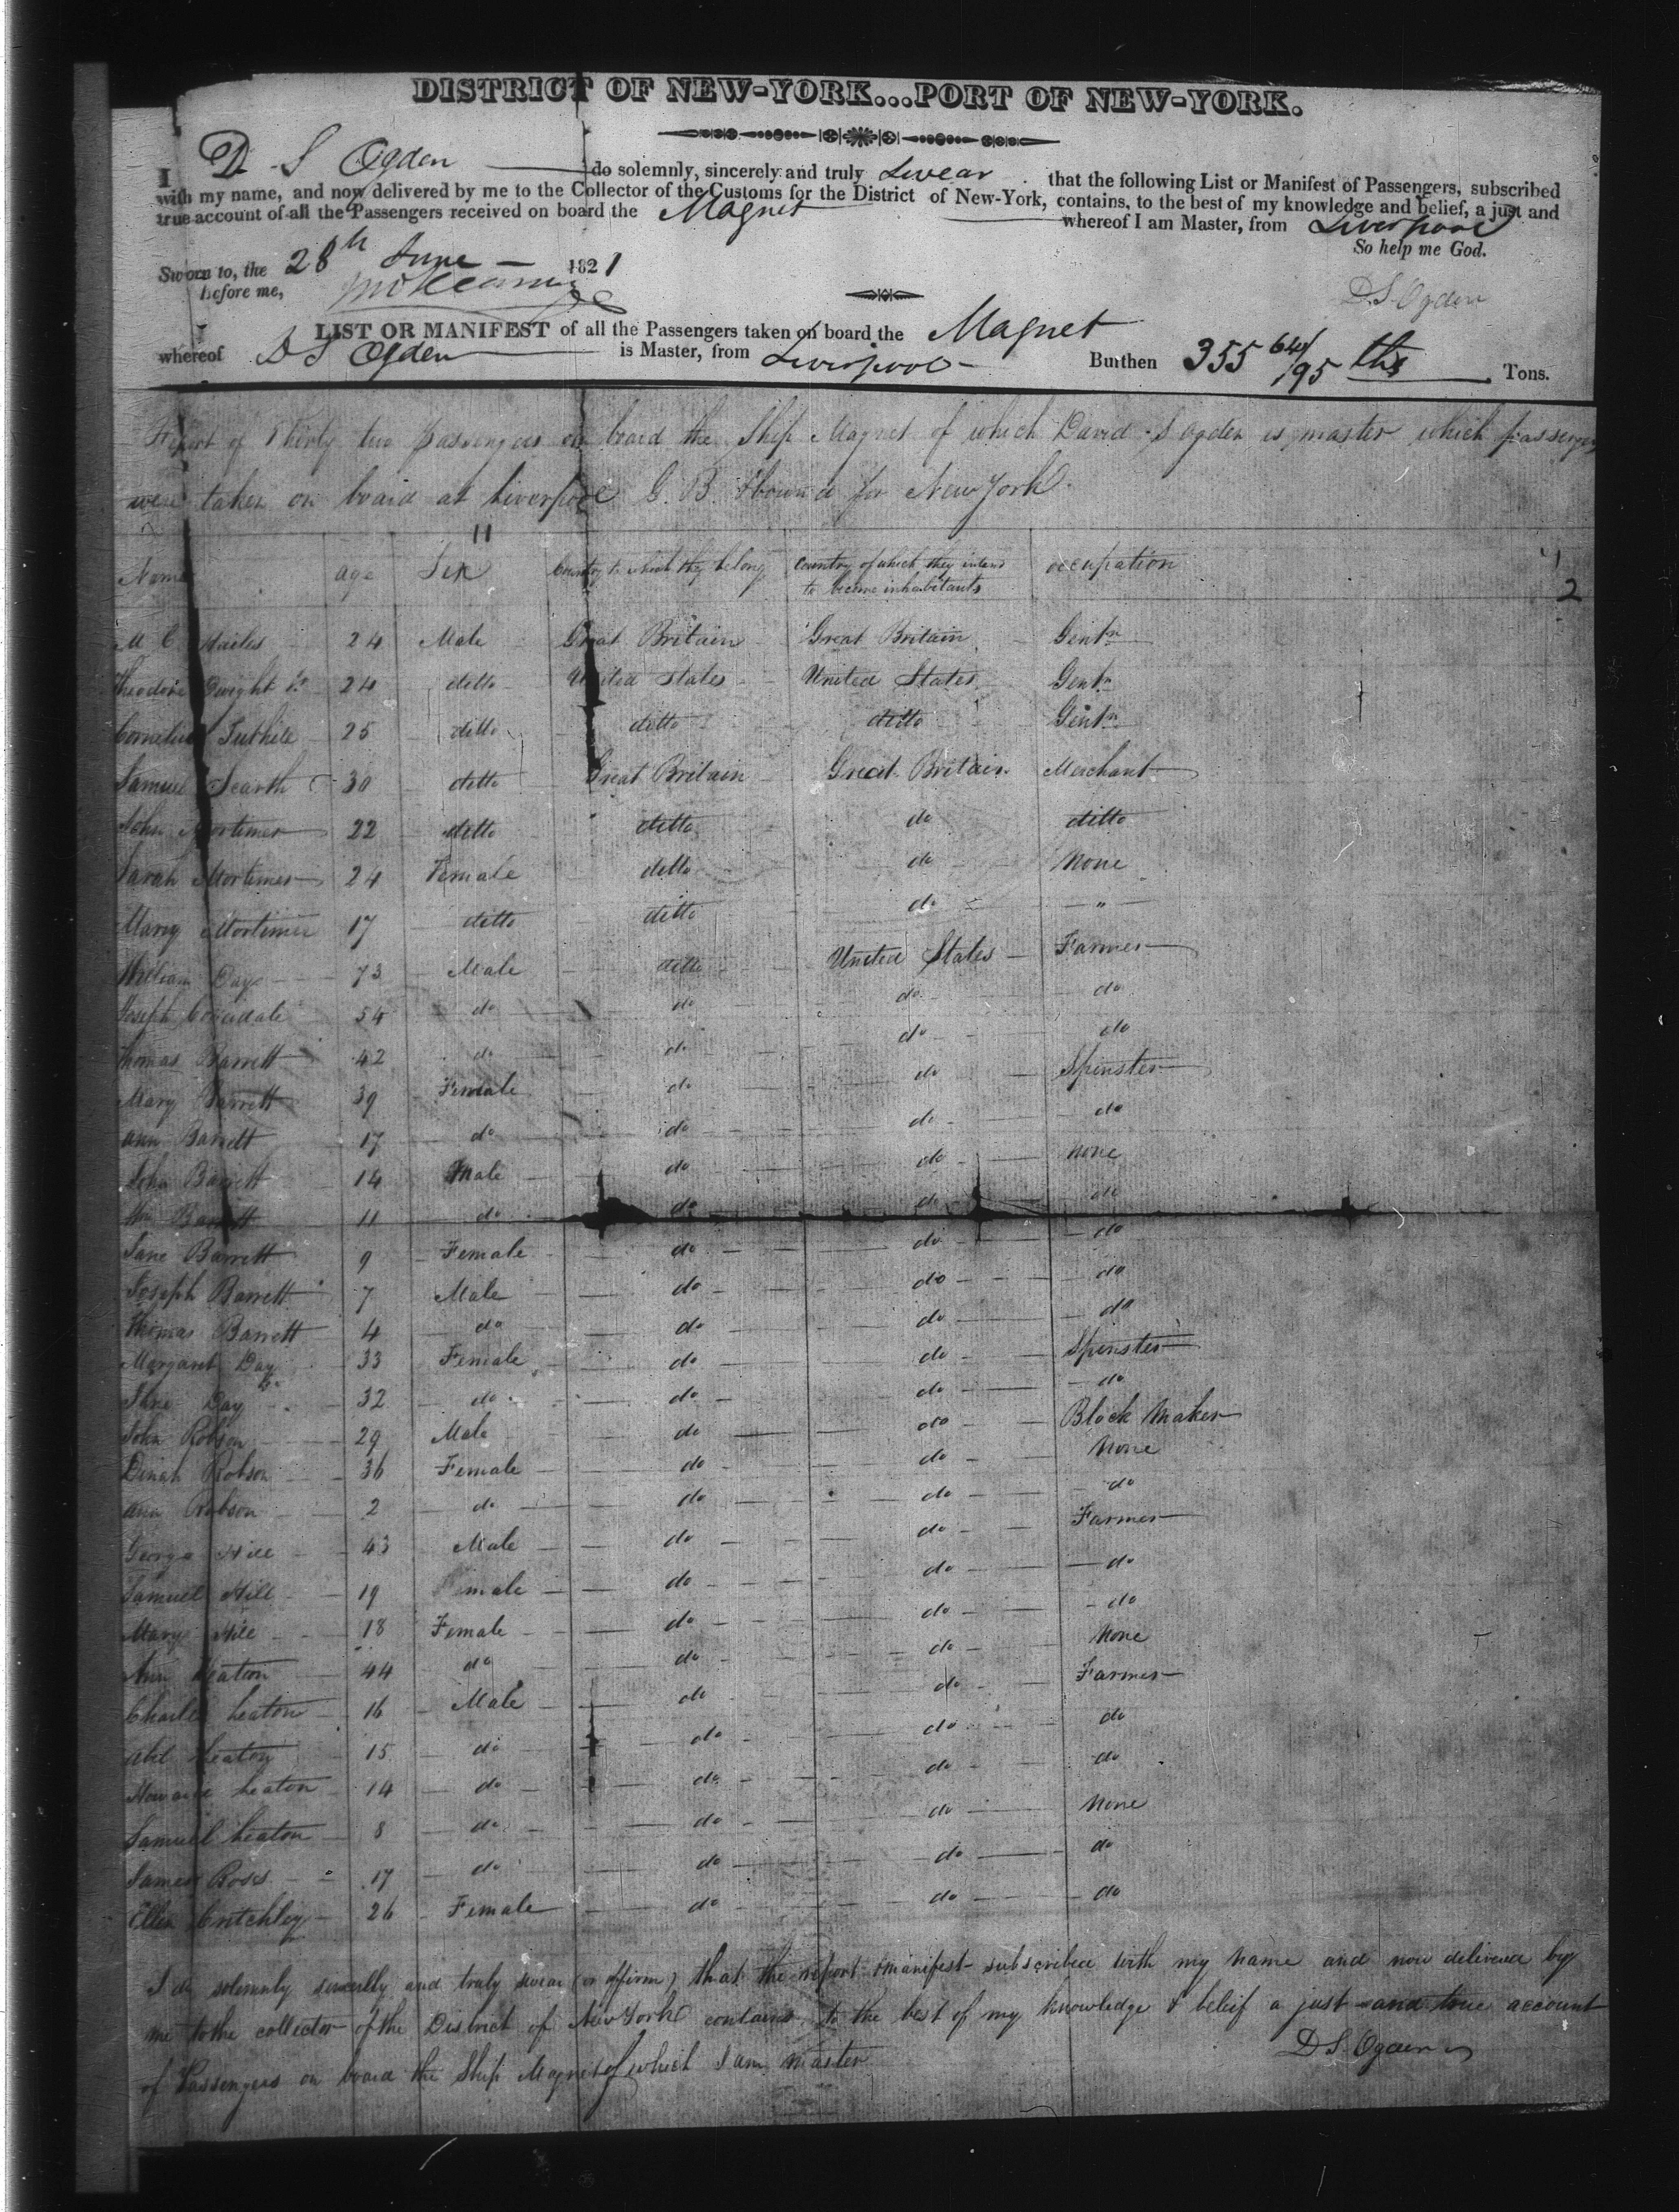 DISTRICT OF NEW-YORK...PORT OF NEW-YORK.
I D. S Ogden do solemnly, sincerely and truly Swear that the following List or Manifest of Passengers, subscribed
with my name, and now delivered by me to the Collector of the Customs for the District of New-York, contains, to the best of my knowledge and belief, a just and
true account of all the Passengers received on board the Magnet whereof I am Master, from Liverpool
So help me God.
Sworn to, the 28th June 1821
before me,
D. S. Ogden
LIST OR MANIFEST of all the Passengers taken on board the Magnet
whereof D S Ogden is Master, from Liverpool Burthen 355 64/95 ths Tons.
Report of Thirty two passengers on board the Ship Magnet of which David S Ogden is master which passengers
were taken on board at Liverpool G. B. & bound for New York.
11
Name age Sex Country to which they belong Country of which they intend to become inhabitants occupation
2
M C 24 Male Great Britain Great Britain Gentn
Theodore Dwight Jr 24 ditto United States United States Gentn
Cornelius Tuthill 25 ditto ditto ditto Gentn
Samuel Scarth 30 ditto Great Britain Great Britain Merchant
John Mortimer 22 ditto ditto do ditto
Sarah Mortimer 24 Female ditto do None
Mary Mortimer 17 ditto ditto do "
William Day 73 Male ditto United States Farmer
Joseph 54 do do do do
Thomas Barrett 42 do do do do
Mary Barrett 39 Female do do Spinster
Ann Barrett 17 do do do do
John Barrett 14 Male do do None
Wm Barrett 11 do do do do
Jane Barrett 9 Female do do do
Joseph Barrett 7 Male do do do
Thomas Barrett 4 do do do do
Margaret Day 33 Female do do Spinster
Jane Day 32 do do do do
John Robson 29 Male do do Block Maker
Dinah Robson 36 Female do do None
Ann Robson 2 do do do do
George Hill 43 Male do do Farmer
Samuel Hill 19 male do do do
Mary Hill 18 Female do do do
Ann Heaton 44 do do do None
Charles Heaton 16 Male do do Farmer
Abel Heaton 15 do do do do
Heaton 14 do do do do
Samuel Heaton 8 do do do None
James Ross 17 do do do do
Ellen Critchley 26 Female do do do
I do solemnly sincerely and truly swear (or affirm) that the report & manifest subscribed with my name and now delivered by
me to the collector of the District of New York contains to the best of my knowledge & belief a just and true account
of Passengers on board the Ship Magnet of which I am master
D S. Ogden